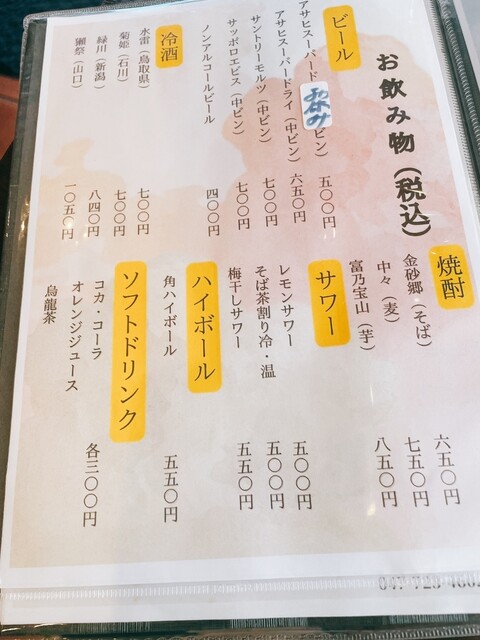 お飲み物(税込)
ビール
アサヒスーパード
お休み
ビン)
五〇〇円
アサヒスーパードライ(中ビン)
六五〇円
サントリーモルツ(中ビン)
七〇〇円
サッポロエビス(中ビン)
七〇〇円
ノンアルコールビール
四〇〇円
冷酒
水雷(鳥取県)
七〇〇円
菊姫(石川)
七〇〇円
緑川(新潟)
八四〇円
獺祭(山口)
一〇五〇円
焼酎
金砂郷(そば)
六五〇円
中々(麦)
七五〇円
富乃宝山(芋)
八五〇円
サワー
レモンサワー
五〇〇円
そば茶割り冷・温
五〇〇円
梅干しサワー
五五〇円
ハイボール
角ハイボール
五五〇円
ソフトドリンク
コカ・コーラ
オレンジジュース
烏龍茶
各三〇〇円